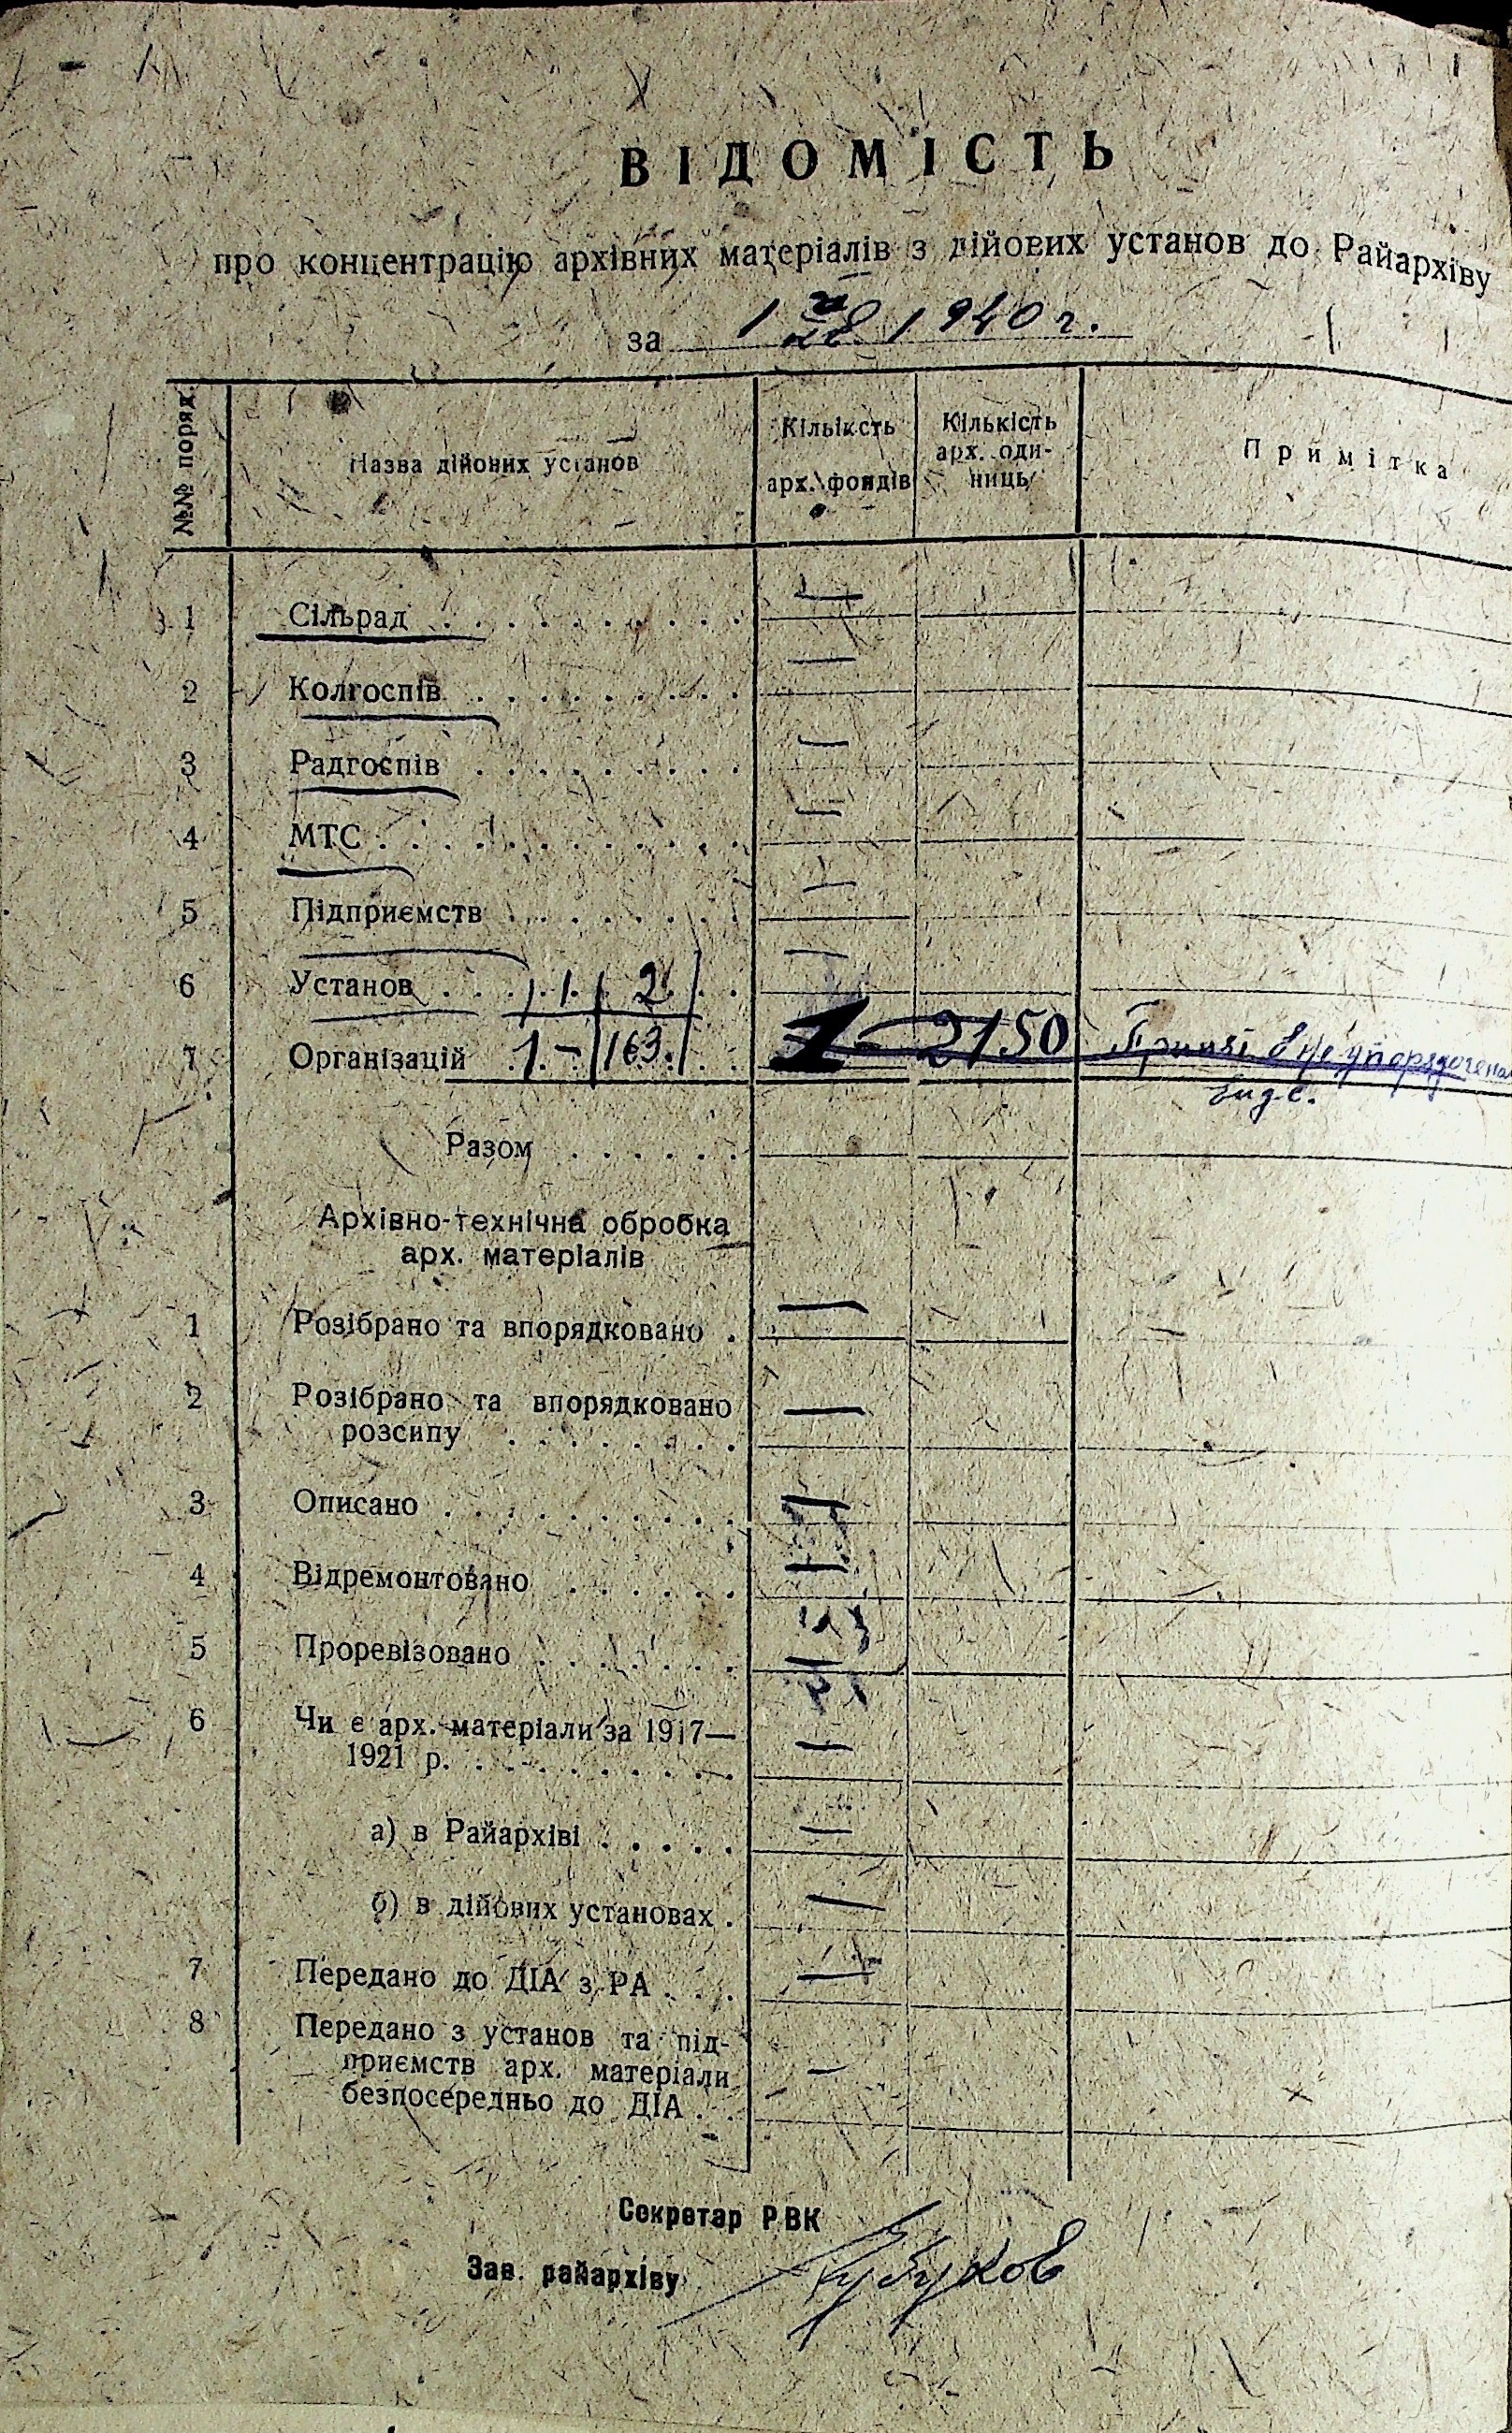 ВІДОМІСТЬ
про концентрацію архівних матеріалів з дійових установ до Райархіву
за 1940 г.
№№ поряд.
Назва дійових установ
Кількість
арх. фондів
Кількість
арх. оди-
ниць
Примітка
1 Сільрад . . . . . . . . . . —
2 Колгоспів . . . . . . . . . —
3 Радгоспів . . . . . . . . . —
4 МТС . . . . . . . . . . . —
5 Підприємств . . . . . . . . —
6 Установ . . . 1. 2. . . —
7 Організацій . 1. - 163. . . 1 - 2150
Разом . . . . . .
Архівно-технічна обробка
арх. матеріалів
1 Розібрано та впорядковано . —
2 Розібрано та впорядковано —
розсипу . . . . . . . .
3 Описано . . . . . . . . . . —
4 Відремонтовано . . . . . . —
5 Проревізовано . . . . . . . —
6 Чи є арх. матеріали за 1917—
1921 р. . . . . . . . . . —
а) в Райархіві . . . . . —
б) в дійових установах . —
7 Передано до ДІА з РА . . . —
8 Передано з установ та під-
приємств арх. матеріали —
безпосередньо до ДІА . .
Секретар РВК
Зав. райархіву